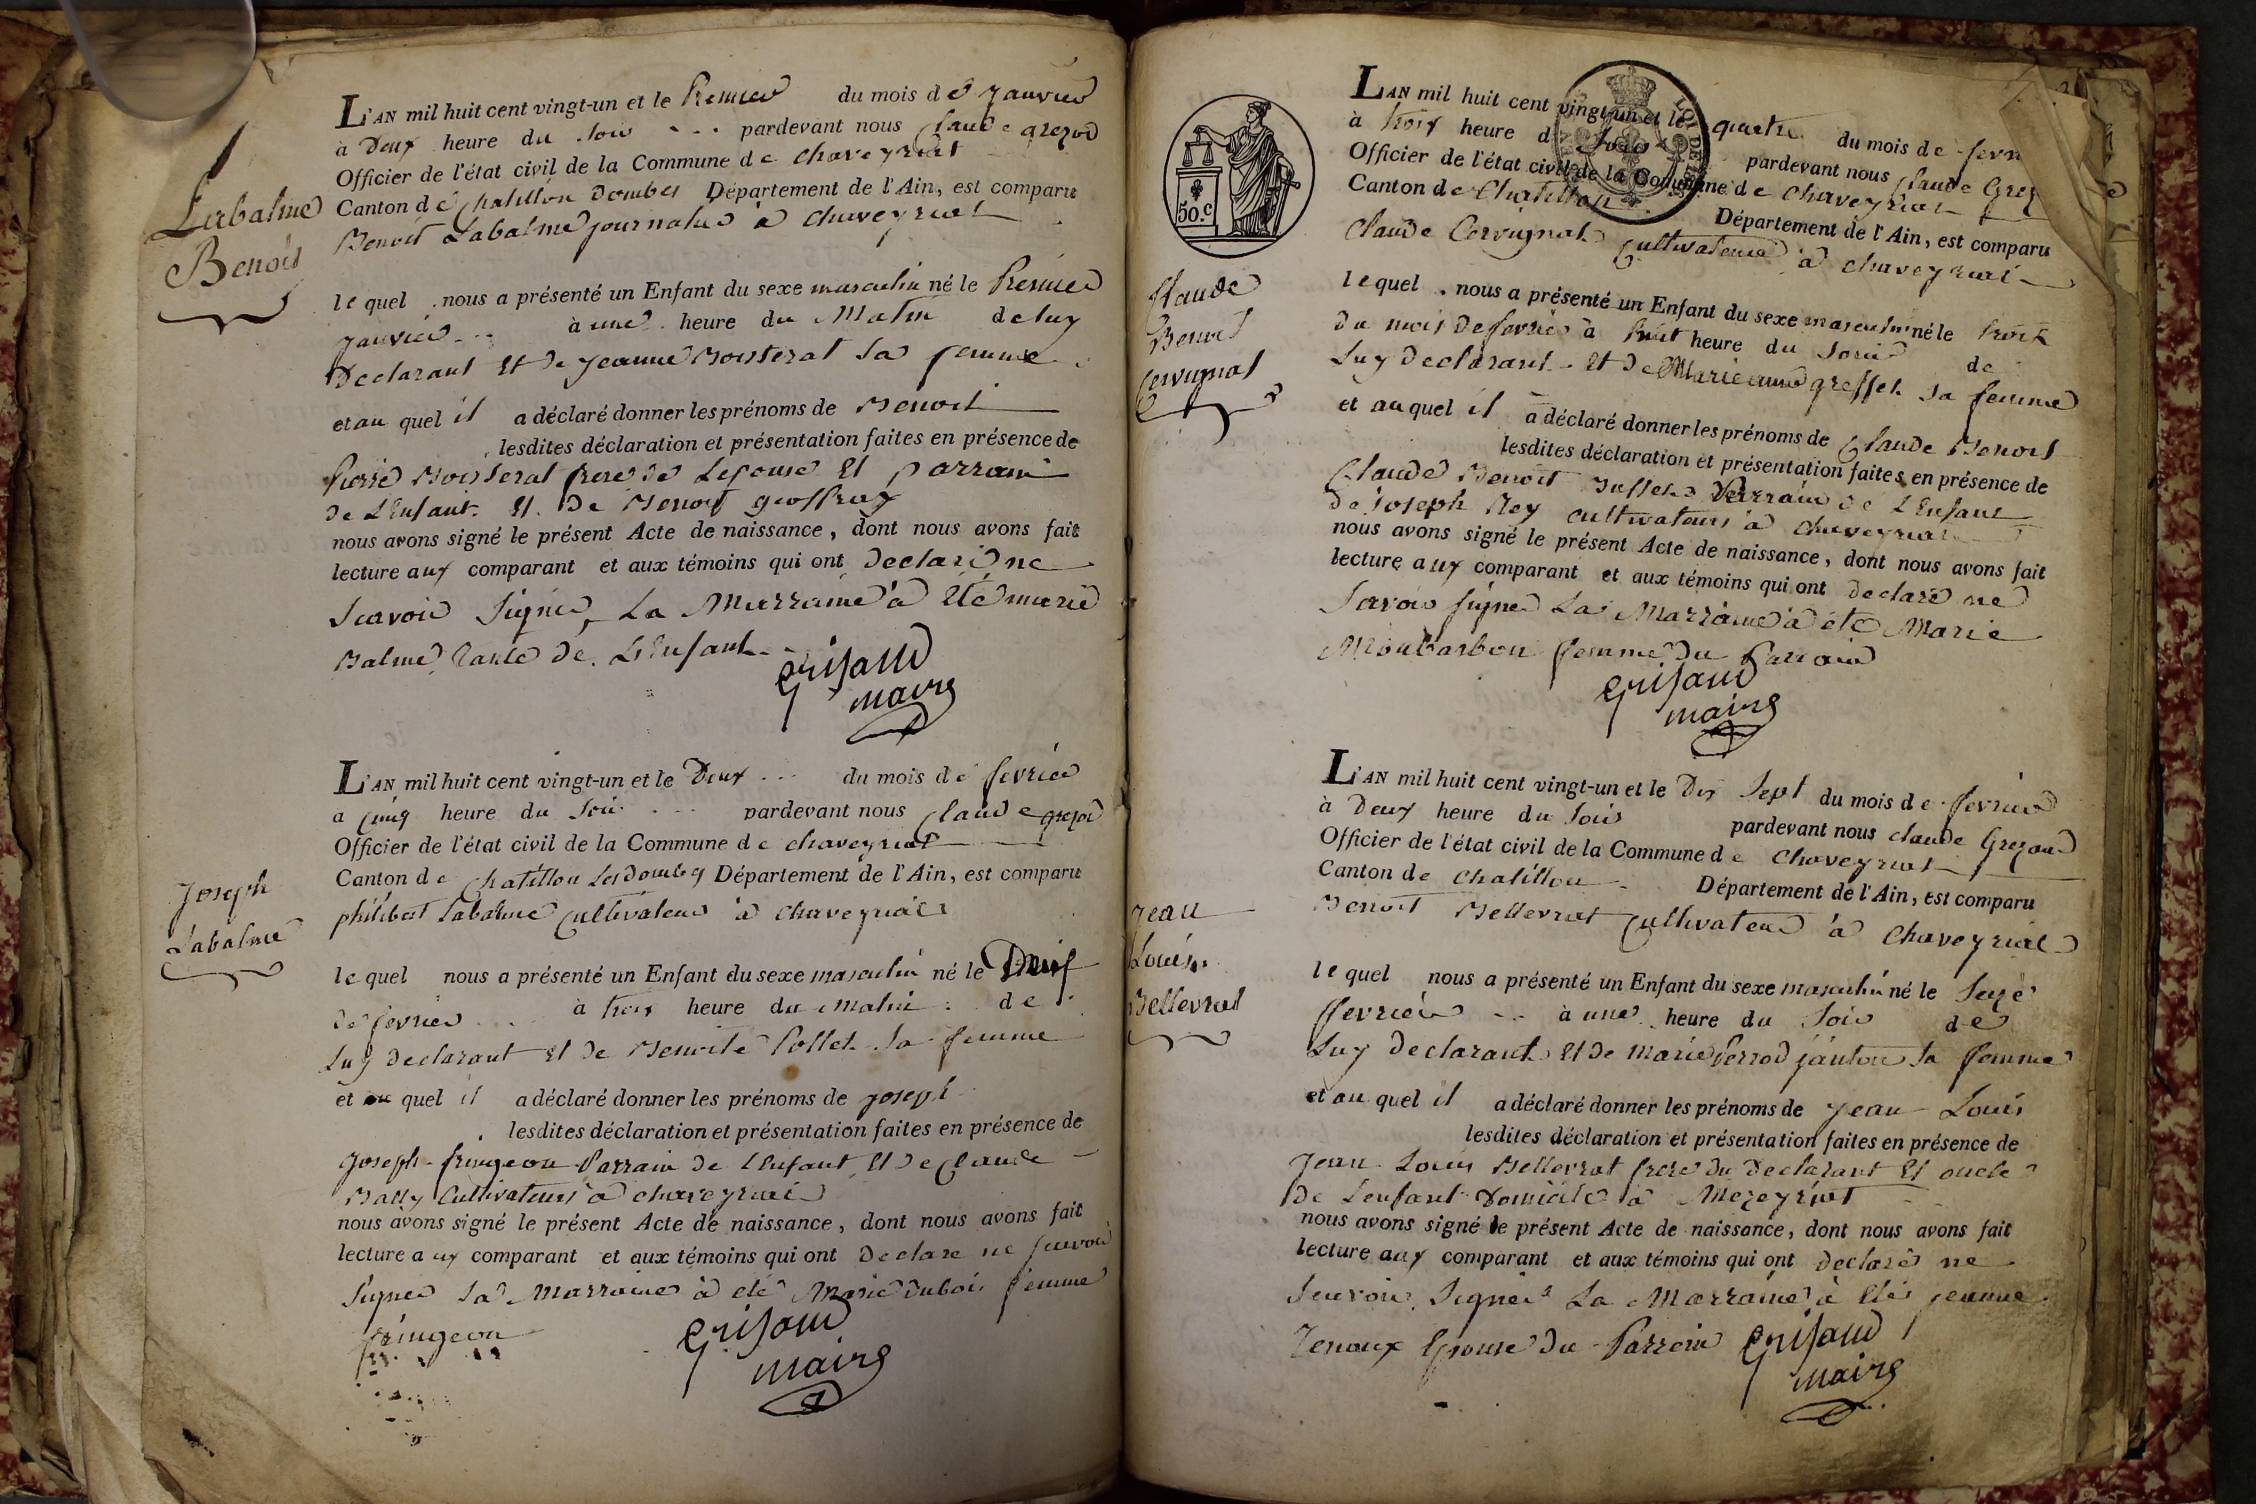 Labalme
Benoit
L'AN mil huit cent vingt-un et le Premier du mois de Janvier
à Deux heure du Soir pardevant nous Claude grezod
Officier de l'état civil de la Commune de chaveyriat
Canton de chatillon Dombes Département de l'Ain, est comparu
Benoit Labalme journalier à chaveyriat
lequel nous a présenté un Enfant du sexe masculin né le Premier
janvier à une heure du Matin de luy
Declarant Et de jeanne Monterat Sa femme
et au quel il a déclaré donner les prénoms de Benoit
lesdites déclaration et présentation faites en présence de
Pierre Monterat frere de Lepouse Et parrain
de LEnfant. Et. De Benoit geoffray
nous avons signé le présent Acte de naissance, dont nous avons fait
lecture aux comparant et aux témoins qui ont declaré ne
Scavoir Signer, La Marraine à Eté marie
Balme tante de LEnfant
Grisaud
maire
Joseph
Labalme
L'AN mil huit cent vingt-un et le Deux du mois de fevrier
à cinq heure du Soir pardevant nous Claude grezod
Officier de l'état civil de la Commune de chaveyriat
Canton de chatillon Les Dombes Département de l'Ain, est comparu
philibert Labalme cultivateur à chaveyriat
lequel nous a présenté un Enfant du sexe masculin né le Deux
de fevrier à trois heure du Matin de
Luy declarant Et de Benoite Pollet Sa femme
et au quel il a déclaré donner les prénoms de joseph
lesdites déclaration et présentation faites en présence de
joseph fringeon Parrain de LEnfant Et de Claude
Bally Cultivateurs à chaveyriat
nous avons signé le présent Acte de naissance, dont nous avons fait
lecture aux comparant et aux témoins qui ont Declare ne scavoir
Signer La Marraine à eté Marie Dubois femme
fringeon
Grisaud
maire
50.c
Claude
Benoit
Cervignat
L'AN mil huit cent vingt-un et le quatre du mois de fevri
à trois heure du Soir pardevant nous Claude Grez
Officier de l'état civil de la Commune de chaveyriat
Canton de Chatillon Département de l'Ain, est comparu
Claude Cervignat Cultivateur à chaveyriat
lequel nous a présenté un Enfant du sexe masculin né le trois
du mois de fevrier à huit heure du Soir de
Luy declarant Et de Marie anne greffet Sa femme
et au quel il a déclaré donner les prénoms de Claude Benoit
lesdites déclaration et présentation faites en présence de
Claude Benoit Parrain de LEnfant
de joseph Rey cultivateurs à chaveyriat
nous avons signé le présent Acte de naissance, dont nous avons fait
lecture aux comparant et aux témoins qui ont declaré ne
Savoir signer La Marraine à été Marie
Monbarbon femme du Parrain
Grisaud
maire
Jean
Louis
Bellevrat
L'AN mil huit cent vingt-un et le Dix Sept du mois de fevrier
à Deux heure du Soir pardevant nous claude Grezaud
Officier de l'état civil de la Commune de Chaveyriat
Canton de chatillon Département de l'Ain, est comparu
Benoit Bellevrat Cultivateur à Chaveyriat
lequel nous a présenté un Enfant du sexe masculin né le Seize
fevrier à une heure du Soir de
Luy declarant Et de marie Perrod janton Sa femme
et au quel il a déclaré donner les prénoms de jean Louis
lesdites déclaration et présentation faites en présence de
Jean Louis Bellevrat frere du Declarant Et oncle
De Lenfant Domicilé à Mezeyriat
nous avons signé le présent Acte de naissance, dont nous avons fait
lecture aux comparant et aux témoins qui ont declaré ne
Scavoir Signer La Marraine à Eté jeanne
Epouse du Parrain
Grisaud
maire